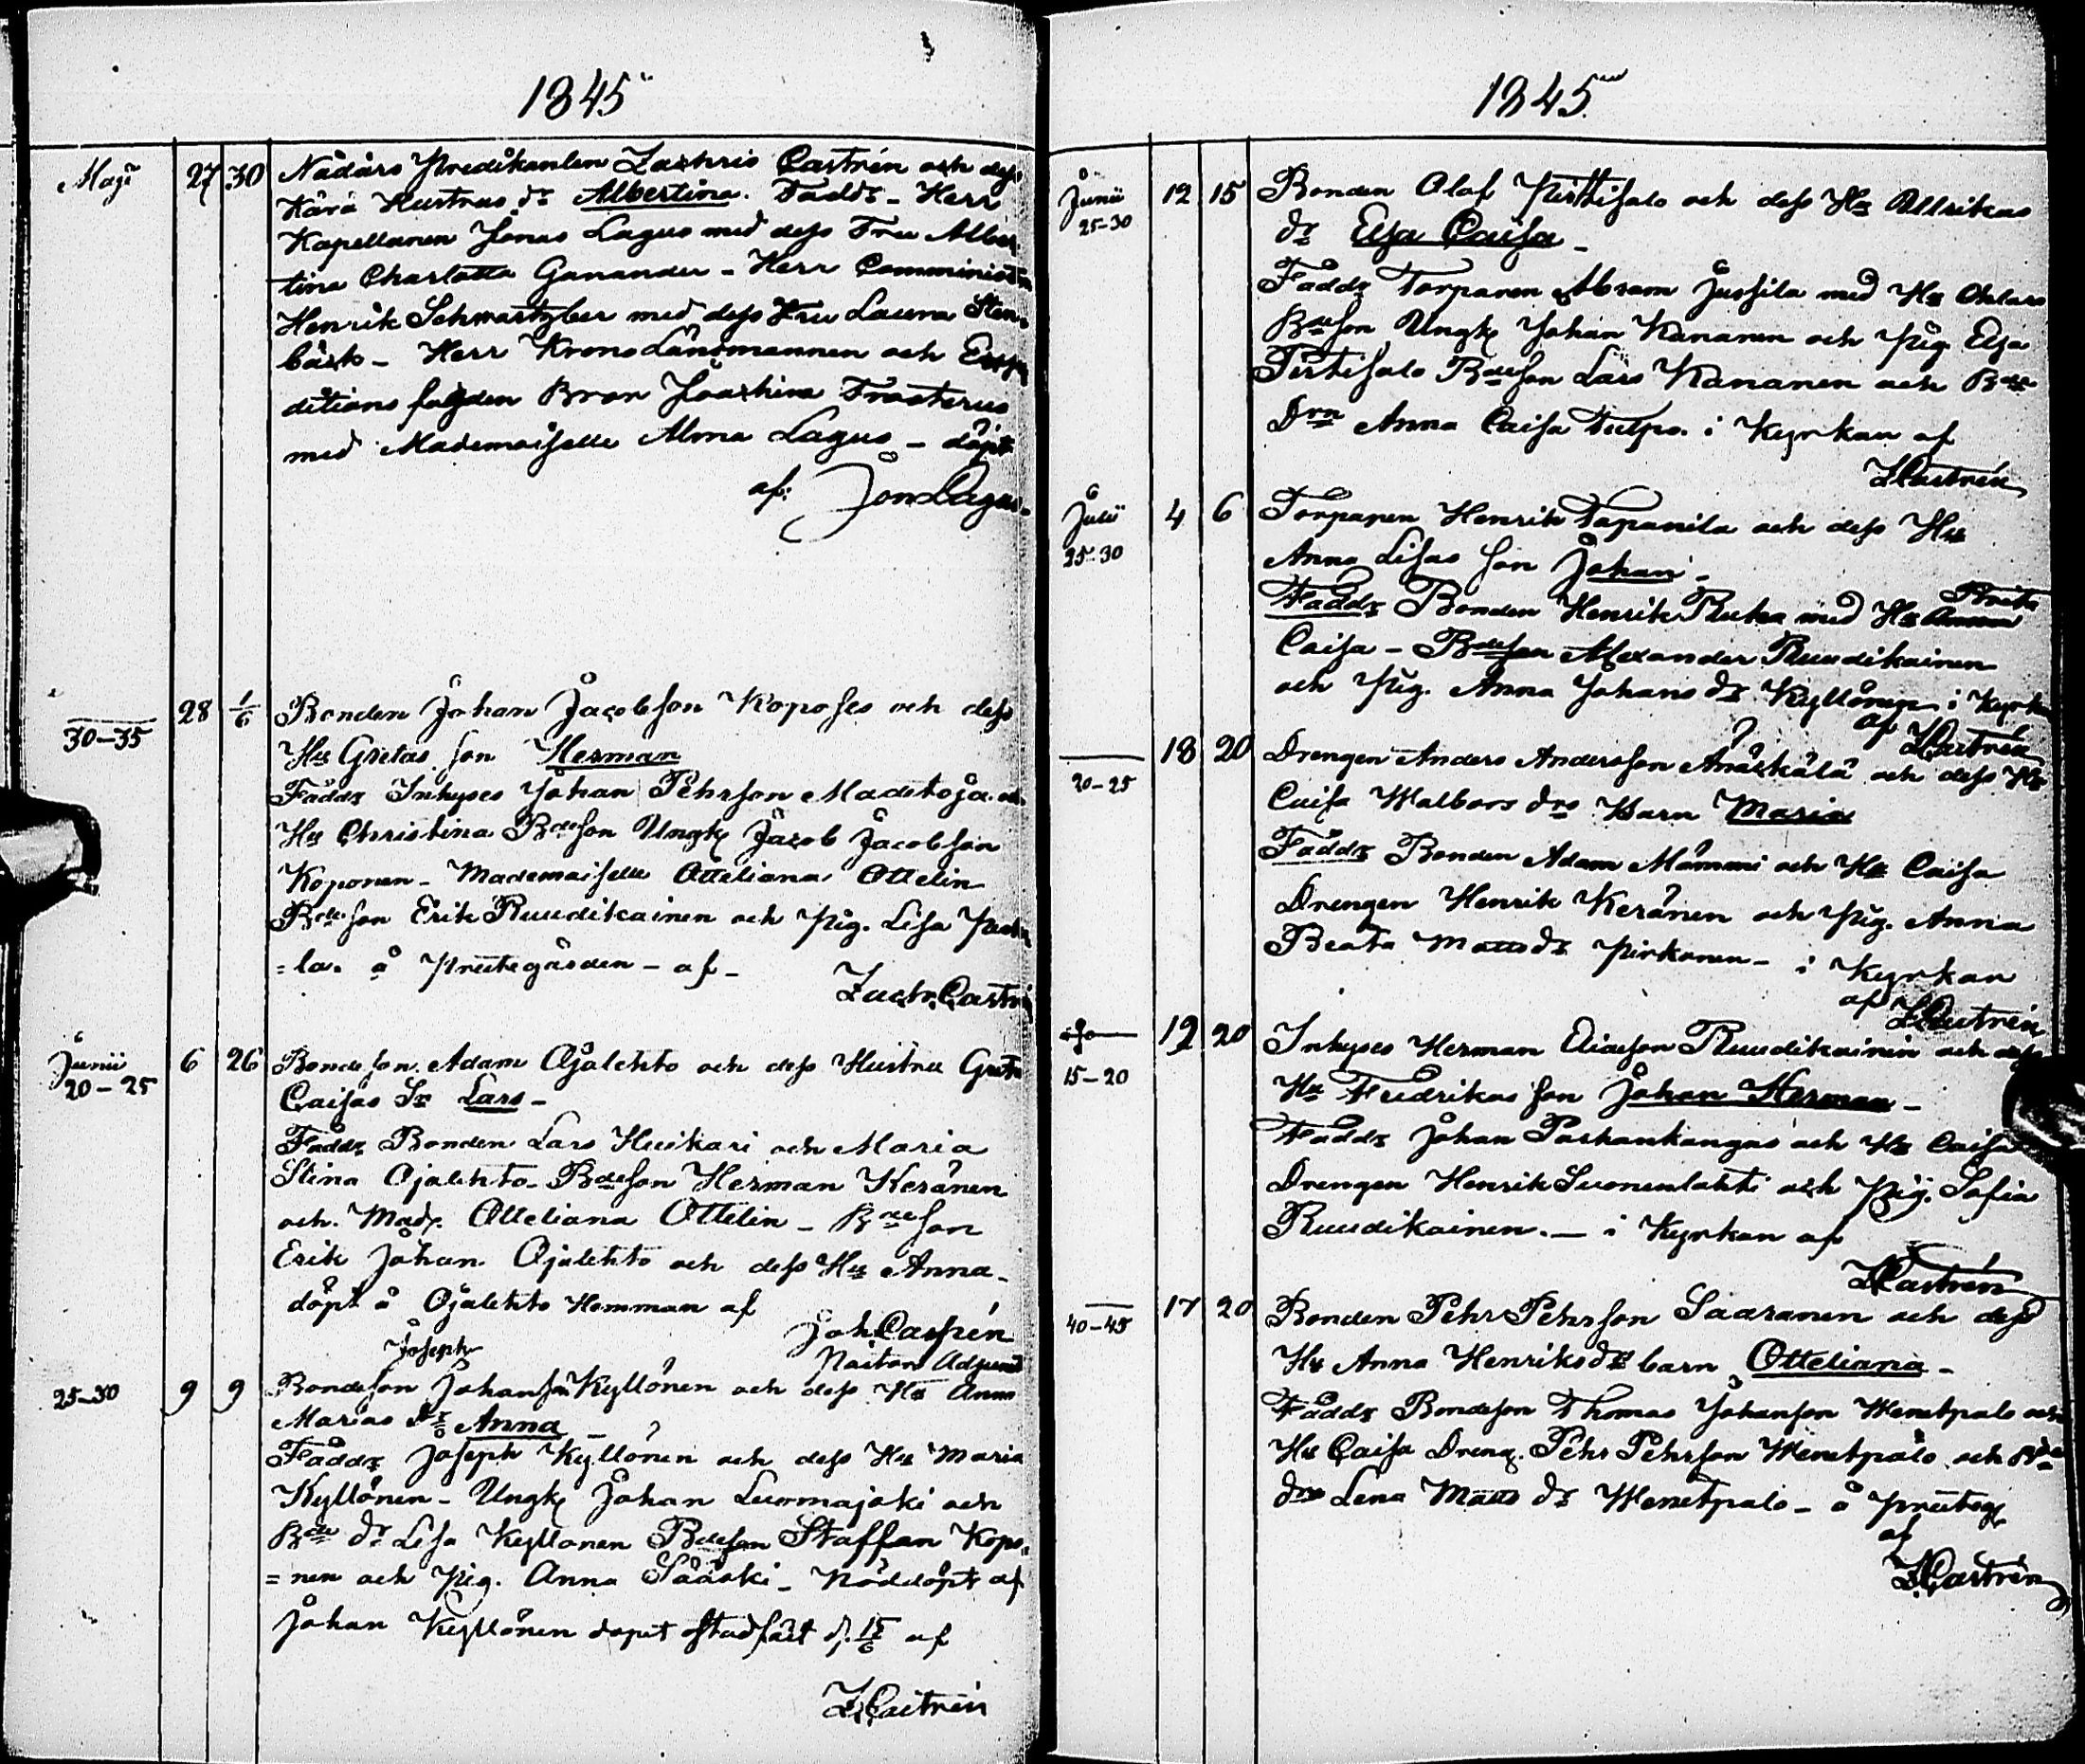 1845
Maji 27 30 Nådårs Predikanten Zachris Castrén och dess
Kära Hustrus dr Albertina. Faddr - Herr
Kapellanen Jonas Lagus med dess Fru Alber
tina Charlotta Ganander - Herr Comminist
Henrik Schwartzber med dess Fru Laura Sten-
bäck - Herr Krono Länsmannen och Expe
ditions fogden Bror Joachim Frosterus
med Mademoiselle Alma Lagus - döpt
af: Jon Lagus.
30-35 28 1/6 Bonden Johan Jacobson Koposes och dess
Hu Gretas son Herman
Faddr Inhyses Johan Pehrson Madetoja
Hu Christina Bdeson Ungk Jacob Jacobson
Koponen - Mademoiselle Otteliana Ottelin
Bdeson Erik Ruudikainen och Pig. Lisa
=la. å Prestegården - af -
Zachr. Castrén
Junii 20-25 6 26 Bondeson Adam Ojalehto och dess Hustru Greta
Caisas Sn Lars -
Faddr Bonden Lars Huikari och Maria
Stina Ojalehto - Bdeson Herman Keränen
och Madx. Otteliana Ottelin - Bdeson
Erik Johan Ojalehto och dess Hu Anna -
döpt å Ojalehto Hemman af
Joh. Castrén
Pastors Adjunct
Joseph
25-30 9 9 Bondeson Johanson Kyllönen och dess Hu Anna
Marias dr Anna
Faddr Joseph Kyllönen och dess Hu Maria
Kyllönen - Ungk Johan Luomajoki och
Bde dr Lisa Kyllönen Bdeson Staffan Kopo-
=nen och Pig. Anna Sääski - Nöddöpt af
Johan Kyllönen dopet stadfäst d. 15/6 af
Z. Castrén
1845
Junii 25-30 12 15 Bonden Olof Pirttisalo och dess Hu Ullrikas
dr Elsa Caisa -
Faddr Torparen Abram Jussila med Hu
Bdeson Ungk Johan Kananen och Pig Elsa
Pirtisalo Bdeson Lars Kananen och Bde
Drn Anna Caisa i Kyrkan af
Z Castrén
Julii 25-30 4 6 Torparen Henrik Tapanila och dess Hu
Anna Lisas son Johan -
Brita
Faddr Bonden Henrik Ruka med Hu Anna
Caisa - Bdeson Alexander Ruudikainen
och Pig. Anna Johans dr Kyllönen i Kyrkan
af Z Castrén
20-25 18 20 Drengen Anders Andersson Määttälä och dess Hu
Caisa Walbors drs Barn Maria
Faddr Bonden Adam Mämmi och Hu Caisa
Drengen Henrik Keränen och Pig. Anna
Beata Matts dr Pirkonen - i Kyrkan
af Z Castrén
15-20 19 20 Inhyses Herman Eliasson Ruudikainen och dess
Hu Fredrikas son Johan Herman -
Faddr Johan Paskankangas och Hu Caisa
Drengen Henrik Suonenlahti och Pig. Sofia
Ruudikainen. - i Kyrkan af
Z Castrén
40-45 17 20 Bonden Pehr Pehrson Saaranen och dess
Hu Anna Henriksdrs barn Otteliana -
Faddr Bondeson Thomas Johanson Wenetpalo och
Hu Caisa Dreng. Pehr Pehrson Wenetpalo och Bde
drn Lena Matts dr Wenetpalo - å Presteg
af
Z Castrén